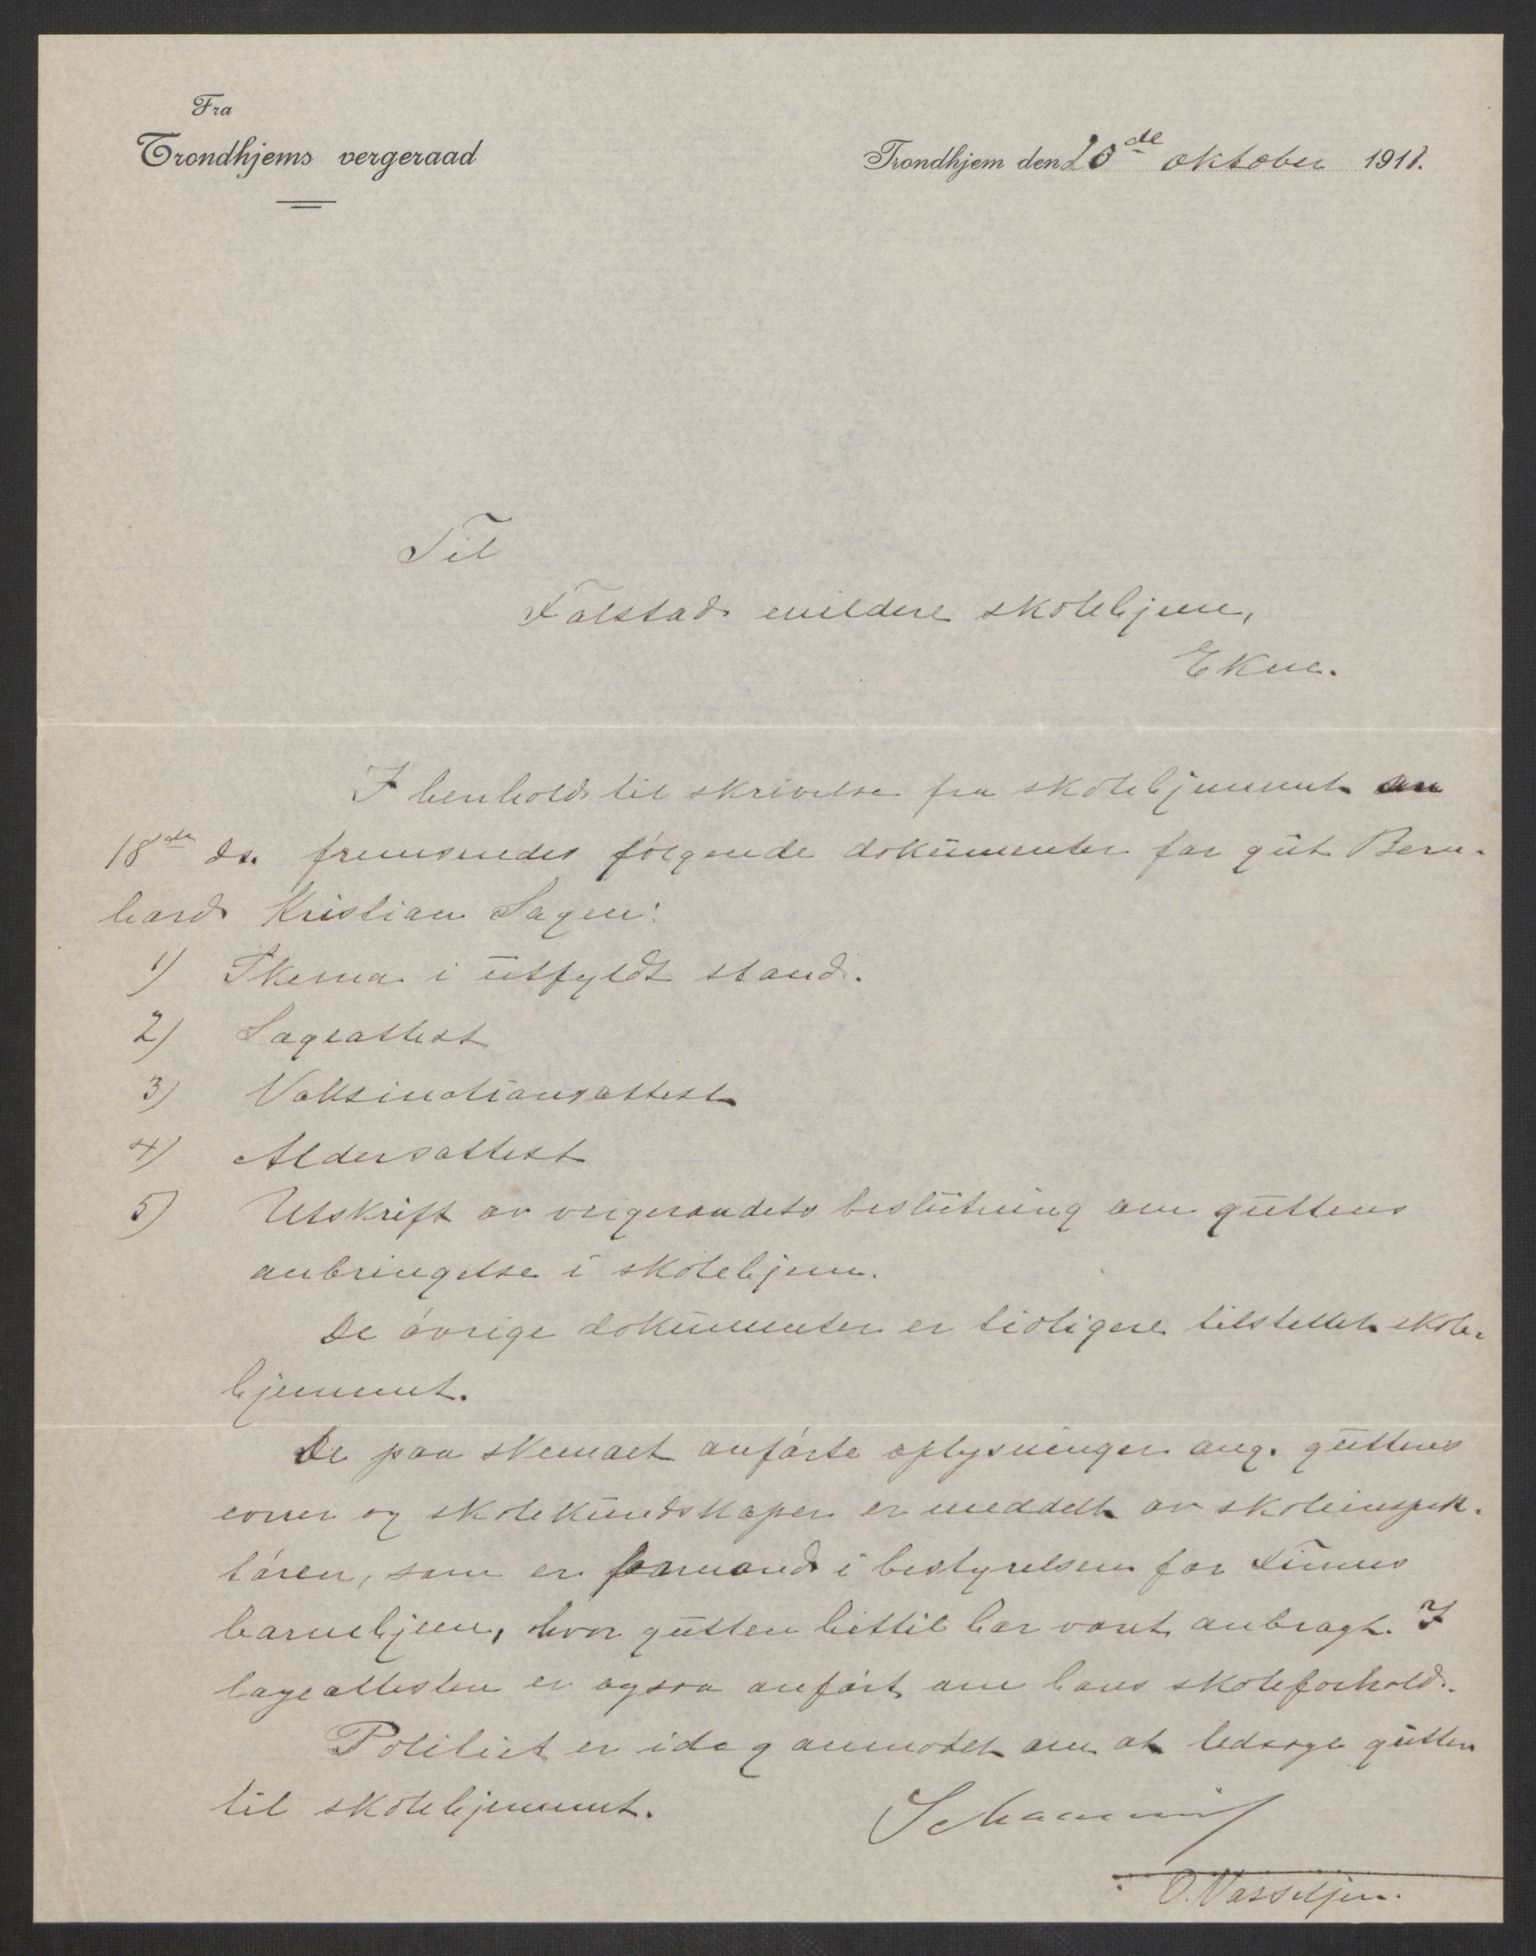 Fra
Trondhjems vergeraad
Trondhjem den 20de oktober 1911.
Til
Falstad mildere skolehjem,
Ekne.
I henhold til skrivelse fra skolehjemmet av
18de ds. fremsendes følgende dokumenter for gut Bern-
hard Kristian Sagen:
1) Skema i utfyldt stand.
2) Lægeattest
3) Vaksinationsattest
4) Aldersattest
5) Utskrift av vergeraadets beslutning om guttens
anbringelse i skolehjem.
De øvrige dokumenter er tidligere tilstellet skole-
hjemmet.
De paa skemaet anførte oplysninger ang. guttens
evner og skolekundskaper er meddelt av skoleinspek-
tøren, som er formand i bestyrelsen for Finnes
barnehjem, hvor gutten hittil har været anbragt. I
lægeattesten er ogsaa anført om hans skoleforhold.
Politiet er idag anmodet om at ledsage gutten
til skolehjemmet.
O. Vasseljen.